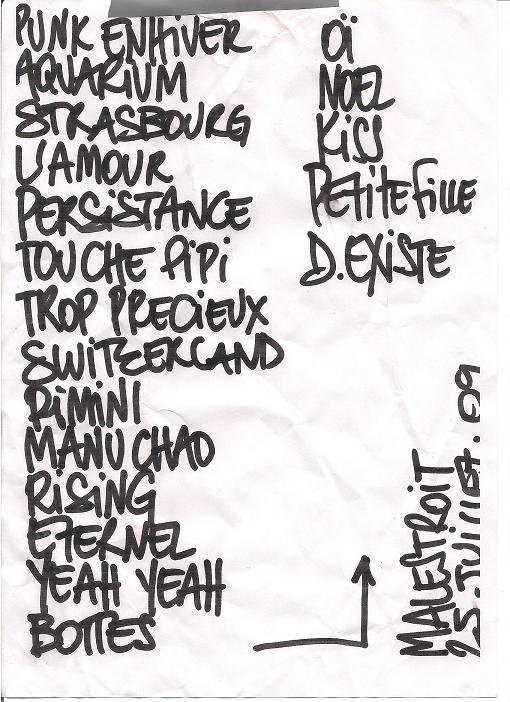 PUNK EN HiVER
AQUARiUM
STRASBOURG
L'AMOUR
PERSiSTANCE
TOUCHE PiPi
TROP PRECiEUX
SWiTZERLAND
RiMiNI
MANU CHAO
RiSiNG
ETERNEL
YEAH YEAH
BOTTES
Oï
NOEL
KiSS
PETiTE FiLLE
D.EXiSTE
MALESTROiT
25.JUiLLET.09